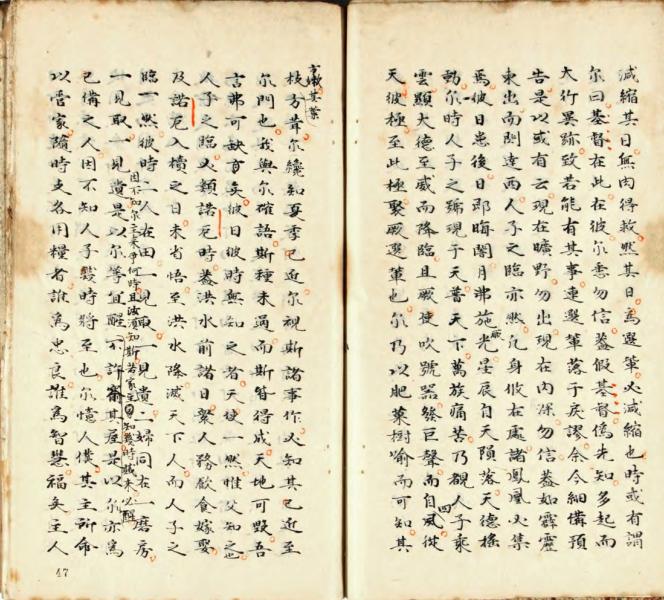 減縮其日無肉得救然其日為選輩必減縮也時或有謂
尔曰基督在此在彼尔悉勿信蓋假基督偽先知多起而
大行異跡致若能有其事連選輩落于戾謬余今細備預
告是以或有云現在曠野勿出現在內深勿信蓋如霹靂
東出而閃達西人子之臨亦然凡身攸在處諸鳳凰必集
焉彼日患後日即晦闇月弗施厥光星辰自天隕落天德搖
動尔時人子之號現于天普天下萬族痛苦乃覩人子乘
雲顯大德至威而降臨且厥使吹號器發巨聲而自四風從
天彼極至此極聚厥選輩也尔乃以肥菓樹喻而可知其
方嫩其葉
枝方昔尔纔知夏季已近尔視斯諸事作必知其已近至
尔門也我與尔確語斯種未過而斯皆得成天地可毀吾
言弗可缺矣彼日彼時無知之者天使一然惟父知之也
人子之臨必類諾厄時蓋洪水前諸日眾人務飲食嫁娶
及諾厄入櫝之日未省悟至洪水降滅天下人而人子之
臨一然彼時二人在田一見取一見遺二婦同在一磨房
因不知尔主來乎何時且汝須知斯若家主知幾時賊來必醒
一見取一見遺是以尔等宜醒不許其屋是以尔亦為
已備之人因不知人子幾時將至也尔憶人僕其主所命
以管家隨時支各用糧者誰為忠良誰為智慧福矣主人
47